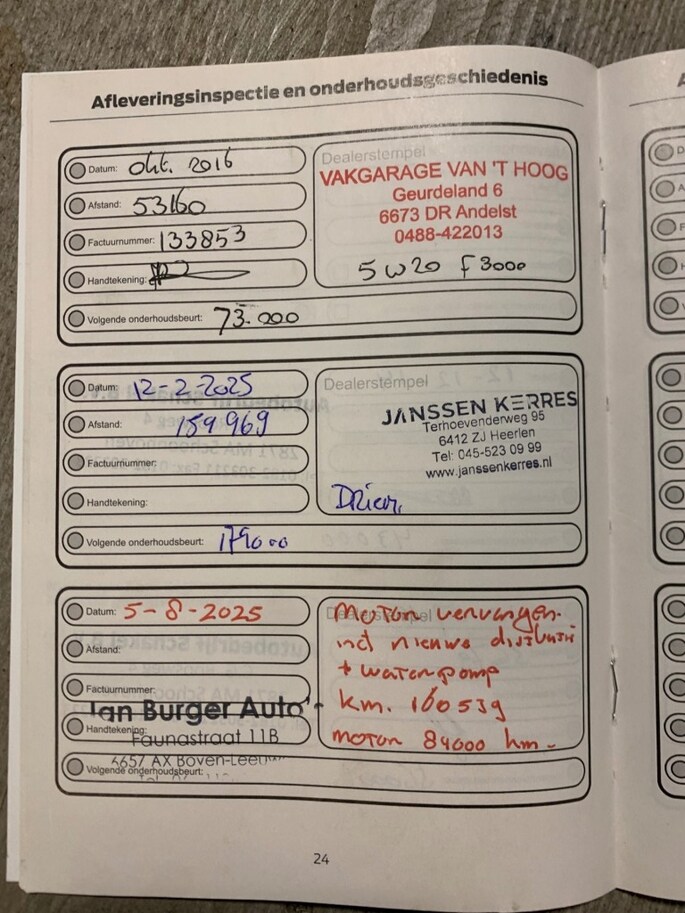 Afleveringsinspectie en onderhoudsgeschiedenis
Datum: okt. 2016
Afstand: 53160
Factuurnummer: 133853
Handtekening:
Volgende onderhoudsbeurt: 73.000
Dealerstempel
VAKGARAGE VAN 'T HOOG
Geurdeland 6
6673 DR Andelst
0488-422013
5w20 f3000
Datum: 12-2-2025
Afstand: 159969
Factuurnummer:
Handtekening:
Volgende onderhoudsbeurt: 179000
Dealerstempel
JANSSEN KERRES
Terhoevenderweg 95
6412 ZJ Heerlen
Tel: 045-523 09 99
www.janssenkerres.nl
Datum: 5-8-2025
Afstand:
Factuurnummer:
Ian Burger Auto'
Handtekening:
Faunastraat 11B
6657 AX Boven-Leeuw
Volgende onderhoudsbeurt:
Dealerstempel
Motor vervangen.
incl nieuwe distributie
+ waterpomp
km. 160539
motor 84000 km.-
24